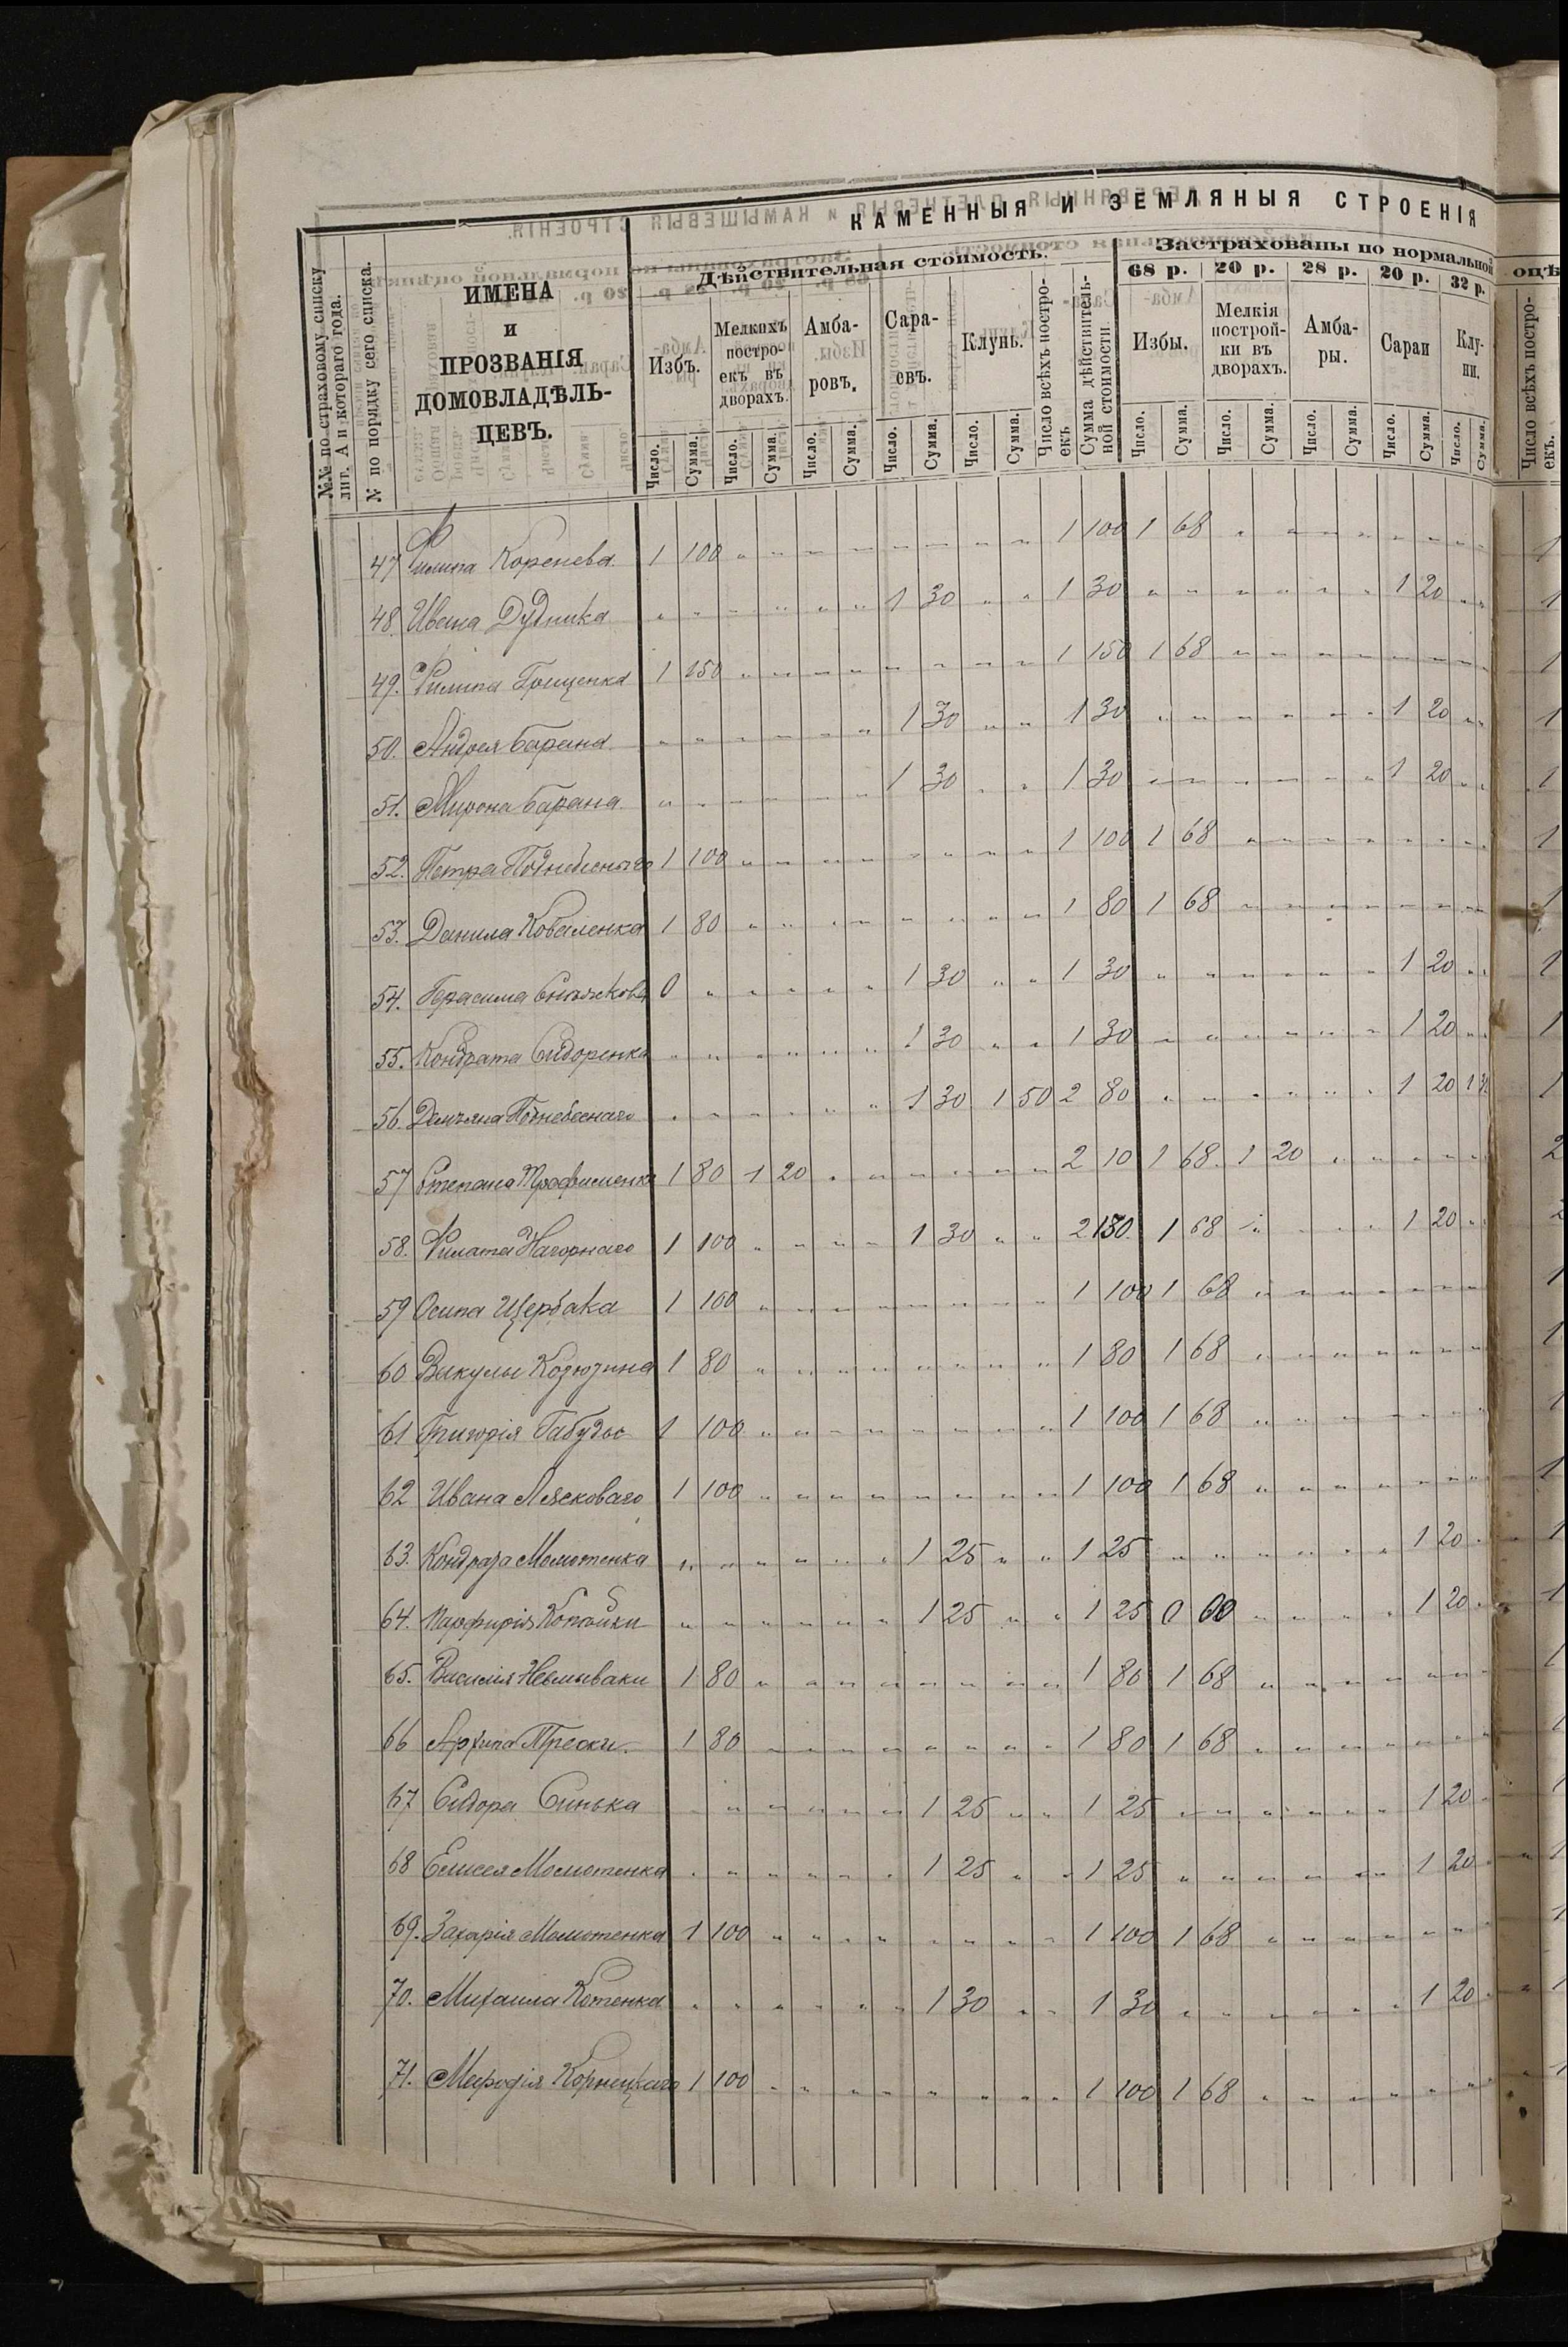 КАМЕННЫЯ И ЗЕМЛЯНЫЯ СТРОЕНІЯ
№№ по страховому списку лит. А и котораго года.
№ по порядку сего списка.
ИМЕНА
и
ПРОЗВАНІЯ
ДОМОВЛАДѢЛЬ-
ЦЕВЪ.
Дѣйствительная стоимость.
Застрахованы по нормальной оцѣ
68 р. 20 р. 28 р. 20 р. 32 р.
Избъ.
Мелкихъ постро-екъ въ дворахъ.
Амба-ровъ.
Сара-евъ.
Клунь.
Число всѣхъ постро-екъ
Сумма дѣйствитель-ной стоимости.
Избы.
Мелкія построй-ки въ дворахъ.
Амба-ры.
Сараи
Клу-ни.
Число всѣхъ постро-екъ.
Число. Сумма. Число. Сумма. Число. Сумма. Число. Сумма. Число. Сумма. Число. Сумма. Число. Сумма. Число. Сумма. Число. Сумма. Число. Сумма.
47 Филипа Коренева 1 100 " " " " " " " " 1 100 1 68 " " " " " " " " 1
48. Ивана Дудника " " " " " " 1 30 " " 1 30 " " " " " " 1 20 " " 1
49. Филипа Грищенка 1 150 " " " " " " " " 1 150 1 68 " " " " " " " " 1
50. Андрея Барана " " " " " " 1 30 " " 1 30 " " " " " " 1 20 " " 1
51. Мирона Барана " " " " " " 1 30 " " 1 30 " " " " " " 1 20 " " 1
52. Петра Поднебеснаго 1 100 " " " " " " " " 1 100 1 68 " " " " " " " " 1
53. Данила Коваленка 1 80 " " " " " " " " 1 80 1 68 " " " " " " " " 1
54. Герасима 0 " " " " " 1 30 " " 1 30 " " " " " " 1 20 " " 1
55. Кондрата Сидоренка " " " " " " 1 30 " " 1 30 " " " " " " 1 20 " " 1
56. Демьяна Поднебеснаго " " " " " " 1 30 1 50 2 80 " " " " " " 1 20 1 32 1
57 Степана Трофименка 1 80 1 20 " " " " " " 2 10 1 68 1 20 " " " " " " 2
58. Филата Нагорнаго 1 100 " " " " 1 30 " " 2 130 1 68 " " " " 1 20 " " 2
59 Осипа Щербака 1 100 " " " " " " " " 1 100 1 68 " " " " " " " " 1
60 Вакулы Козюзина 1 80 " " " " " " " " 1 80 1 68 " " " " " " " " 1
61 Григорія 1 100 " " " " " " " " 1 100 1 68 " " " " " " " " 1
62 Ивана Лясковаго 1 100 " " " " " " " " 1 100 1 68 " " " " " " " " 1
63. Кондрата Момотенка " " " " " " 1 25 " " 1 25 " " " " " " 1 20 " 1
64. Парфирія Копайки " " " " " " 1 25 " " 1 25 0 00 " " " " 1 20 " 1
65. Василія Невмываки 1 80 " " " " " " " " 1 80 1 68 " " " " " " " " 1
66 Архипа 1 80 " " " " " " " " 1 80 1 68 " " " " " " " " 1
67 Сидора Синька " " " " " " 1 25 " " 1 25 " " " " " " 1 20 " 1
68 Елисея Момотенка " " " " " " 1 25 " " 1 25 " " " " " " 1 20 " 1
69. Захарія Момотенка 1 100 " " " " " " " " 1 100 1 68 " " " " " " " " 1
70. Михаила Котенка " " " " " " 1 30 " " 1 30 " " " " " " 1 20 " 1
71. Мефодія Корнецкаго 1 100 " " " " " " " " 1 100 1 68 " " " " " " " " 1